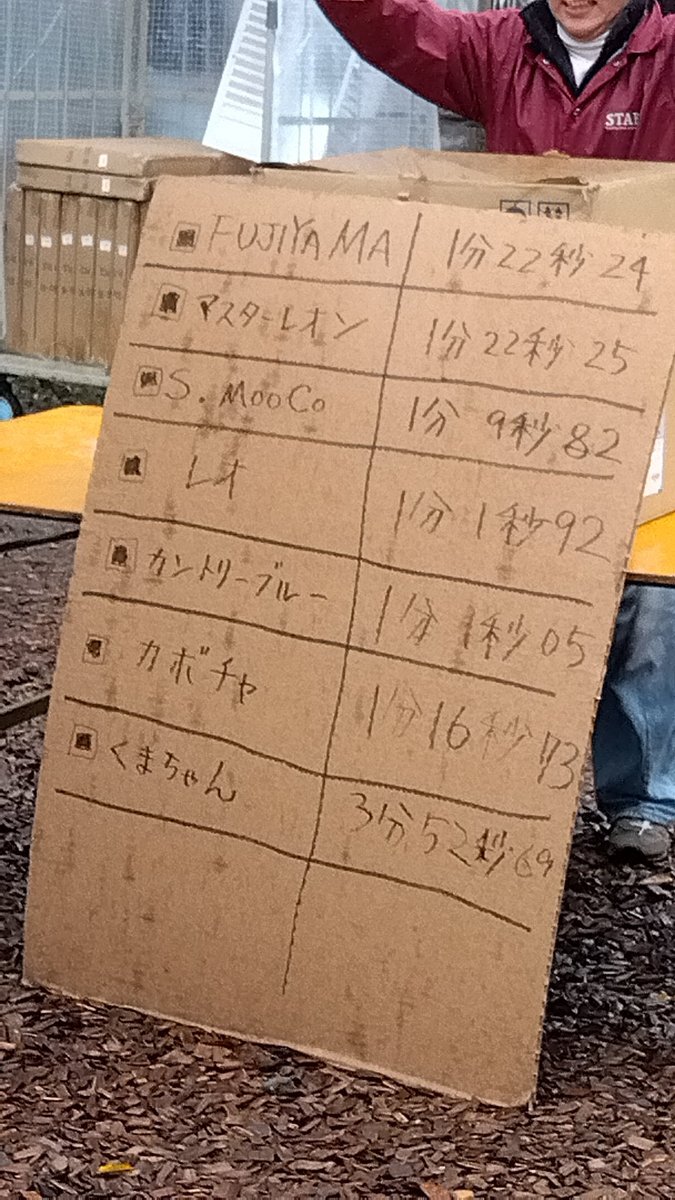 FUJIYAMA 1分22秒24
マスターレオン 1分22秒25
S.MooCo 1分9秒82
レオ 1分1秒92
カントリーブルー 1分1秒05
カボチャ 1分16秒73
くまちゃん 3分52秒69